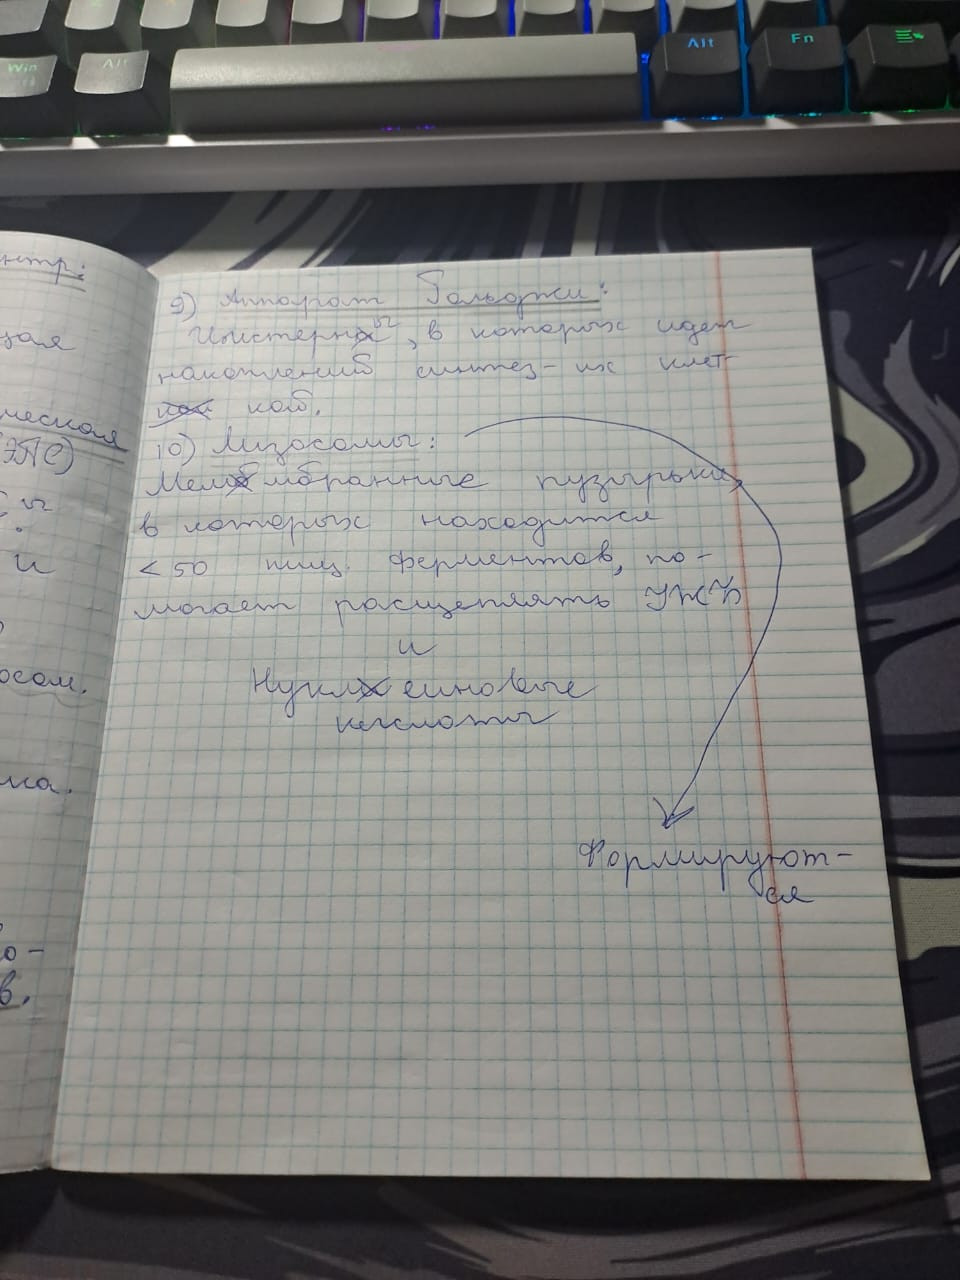 Win
Alt
Alt
Fn
нтр:
щая
ческая
(ЭПС)
ы
и
осом.
ма.
о-
в.
9) Аппарат Гольджи:
Цистерны, в которых идет
накоплений синтез-их клет-
кой.
10) Лизосомы:
Мембранные пузырьки,
в которых находится
< 50 пищ. ферментов, по-
могает расщеплять УЖБ
и
Нуклеиновые
кислоты
Формируют-
ся